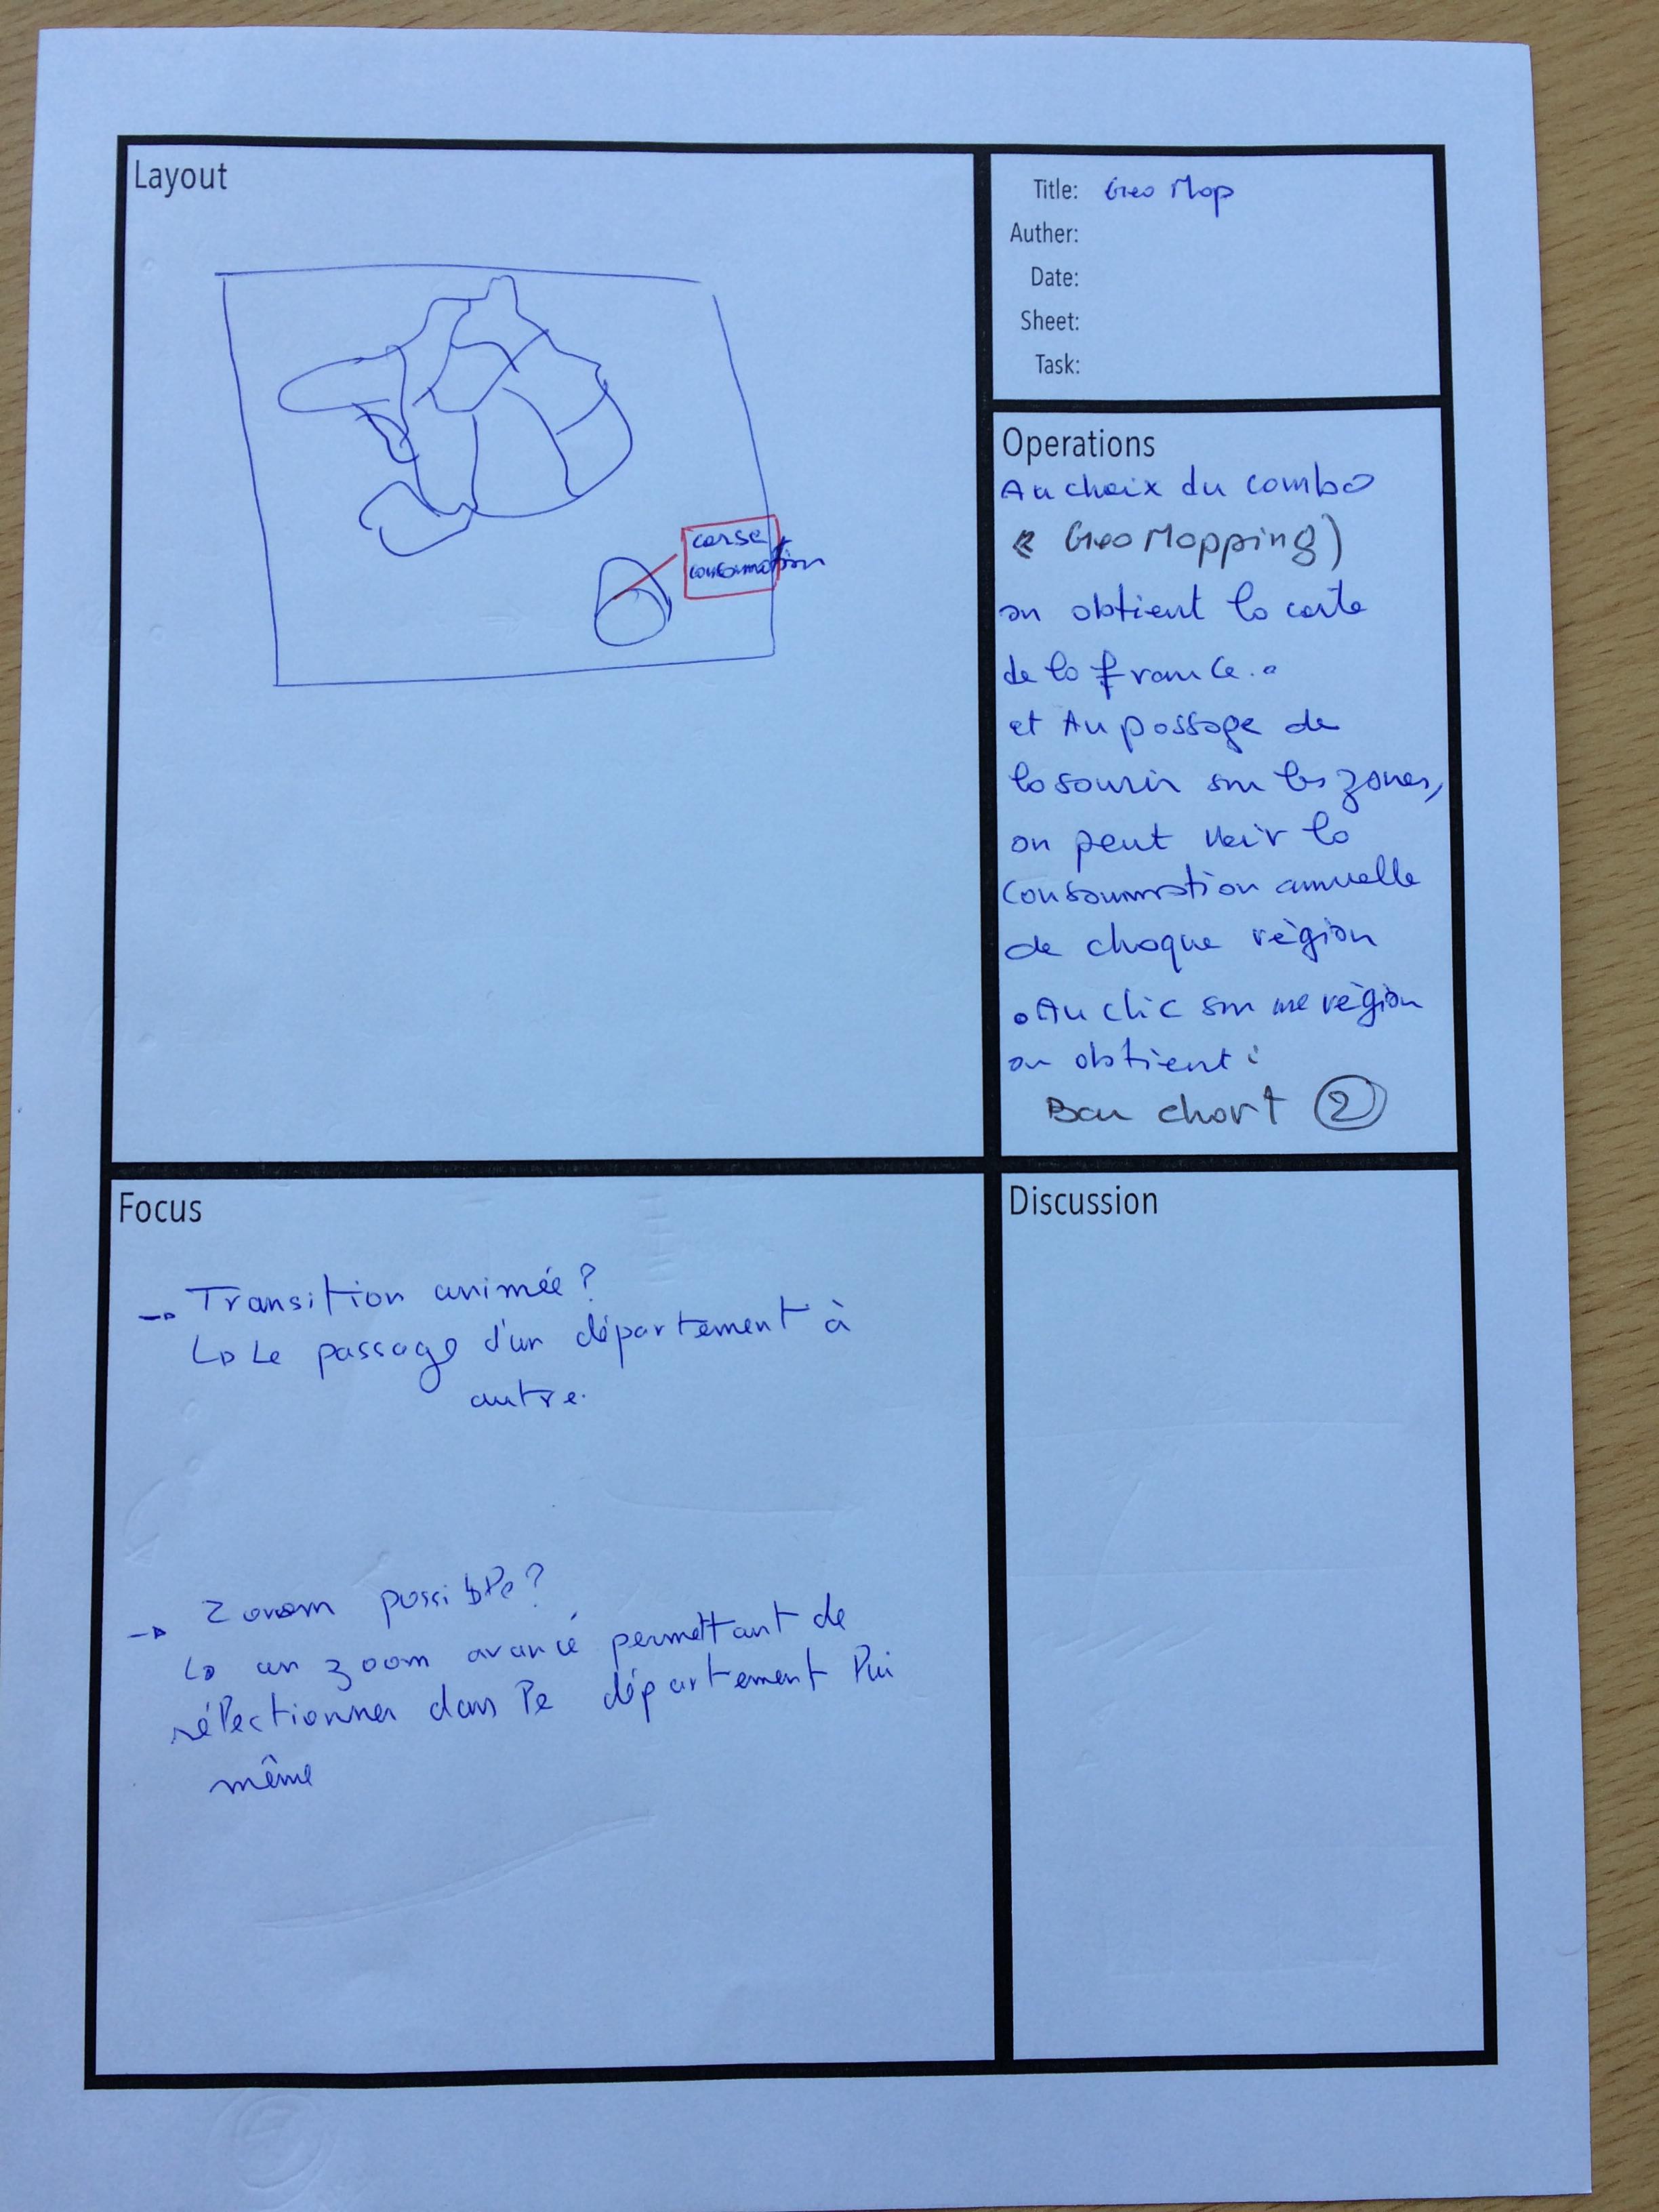 Layout
corse
consommation
Title: Geo Map
Auther:
Date:
Sheet:
Task:
Operations
Au choix du combo
« Geo Mapping)
on obtient la carte
de la france.
et Au passage de
la souris sur les zones,
on peut voir la
consommation annuelle
de chaque région
• Au clic sur une région
on obtient :
Bar chart 2
Focus
→ Transition animée ?
↳ Le passage d'un département à
autre.
→ Zoom possible ?
↳ un zoom avancé permettant de
sélectionner dans le département lui
même
Discussion